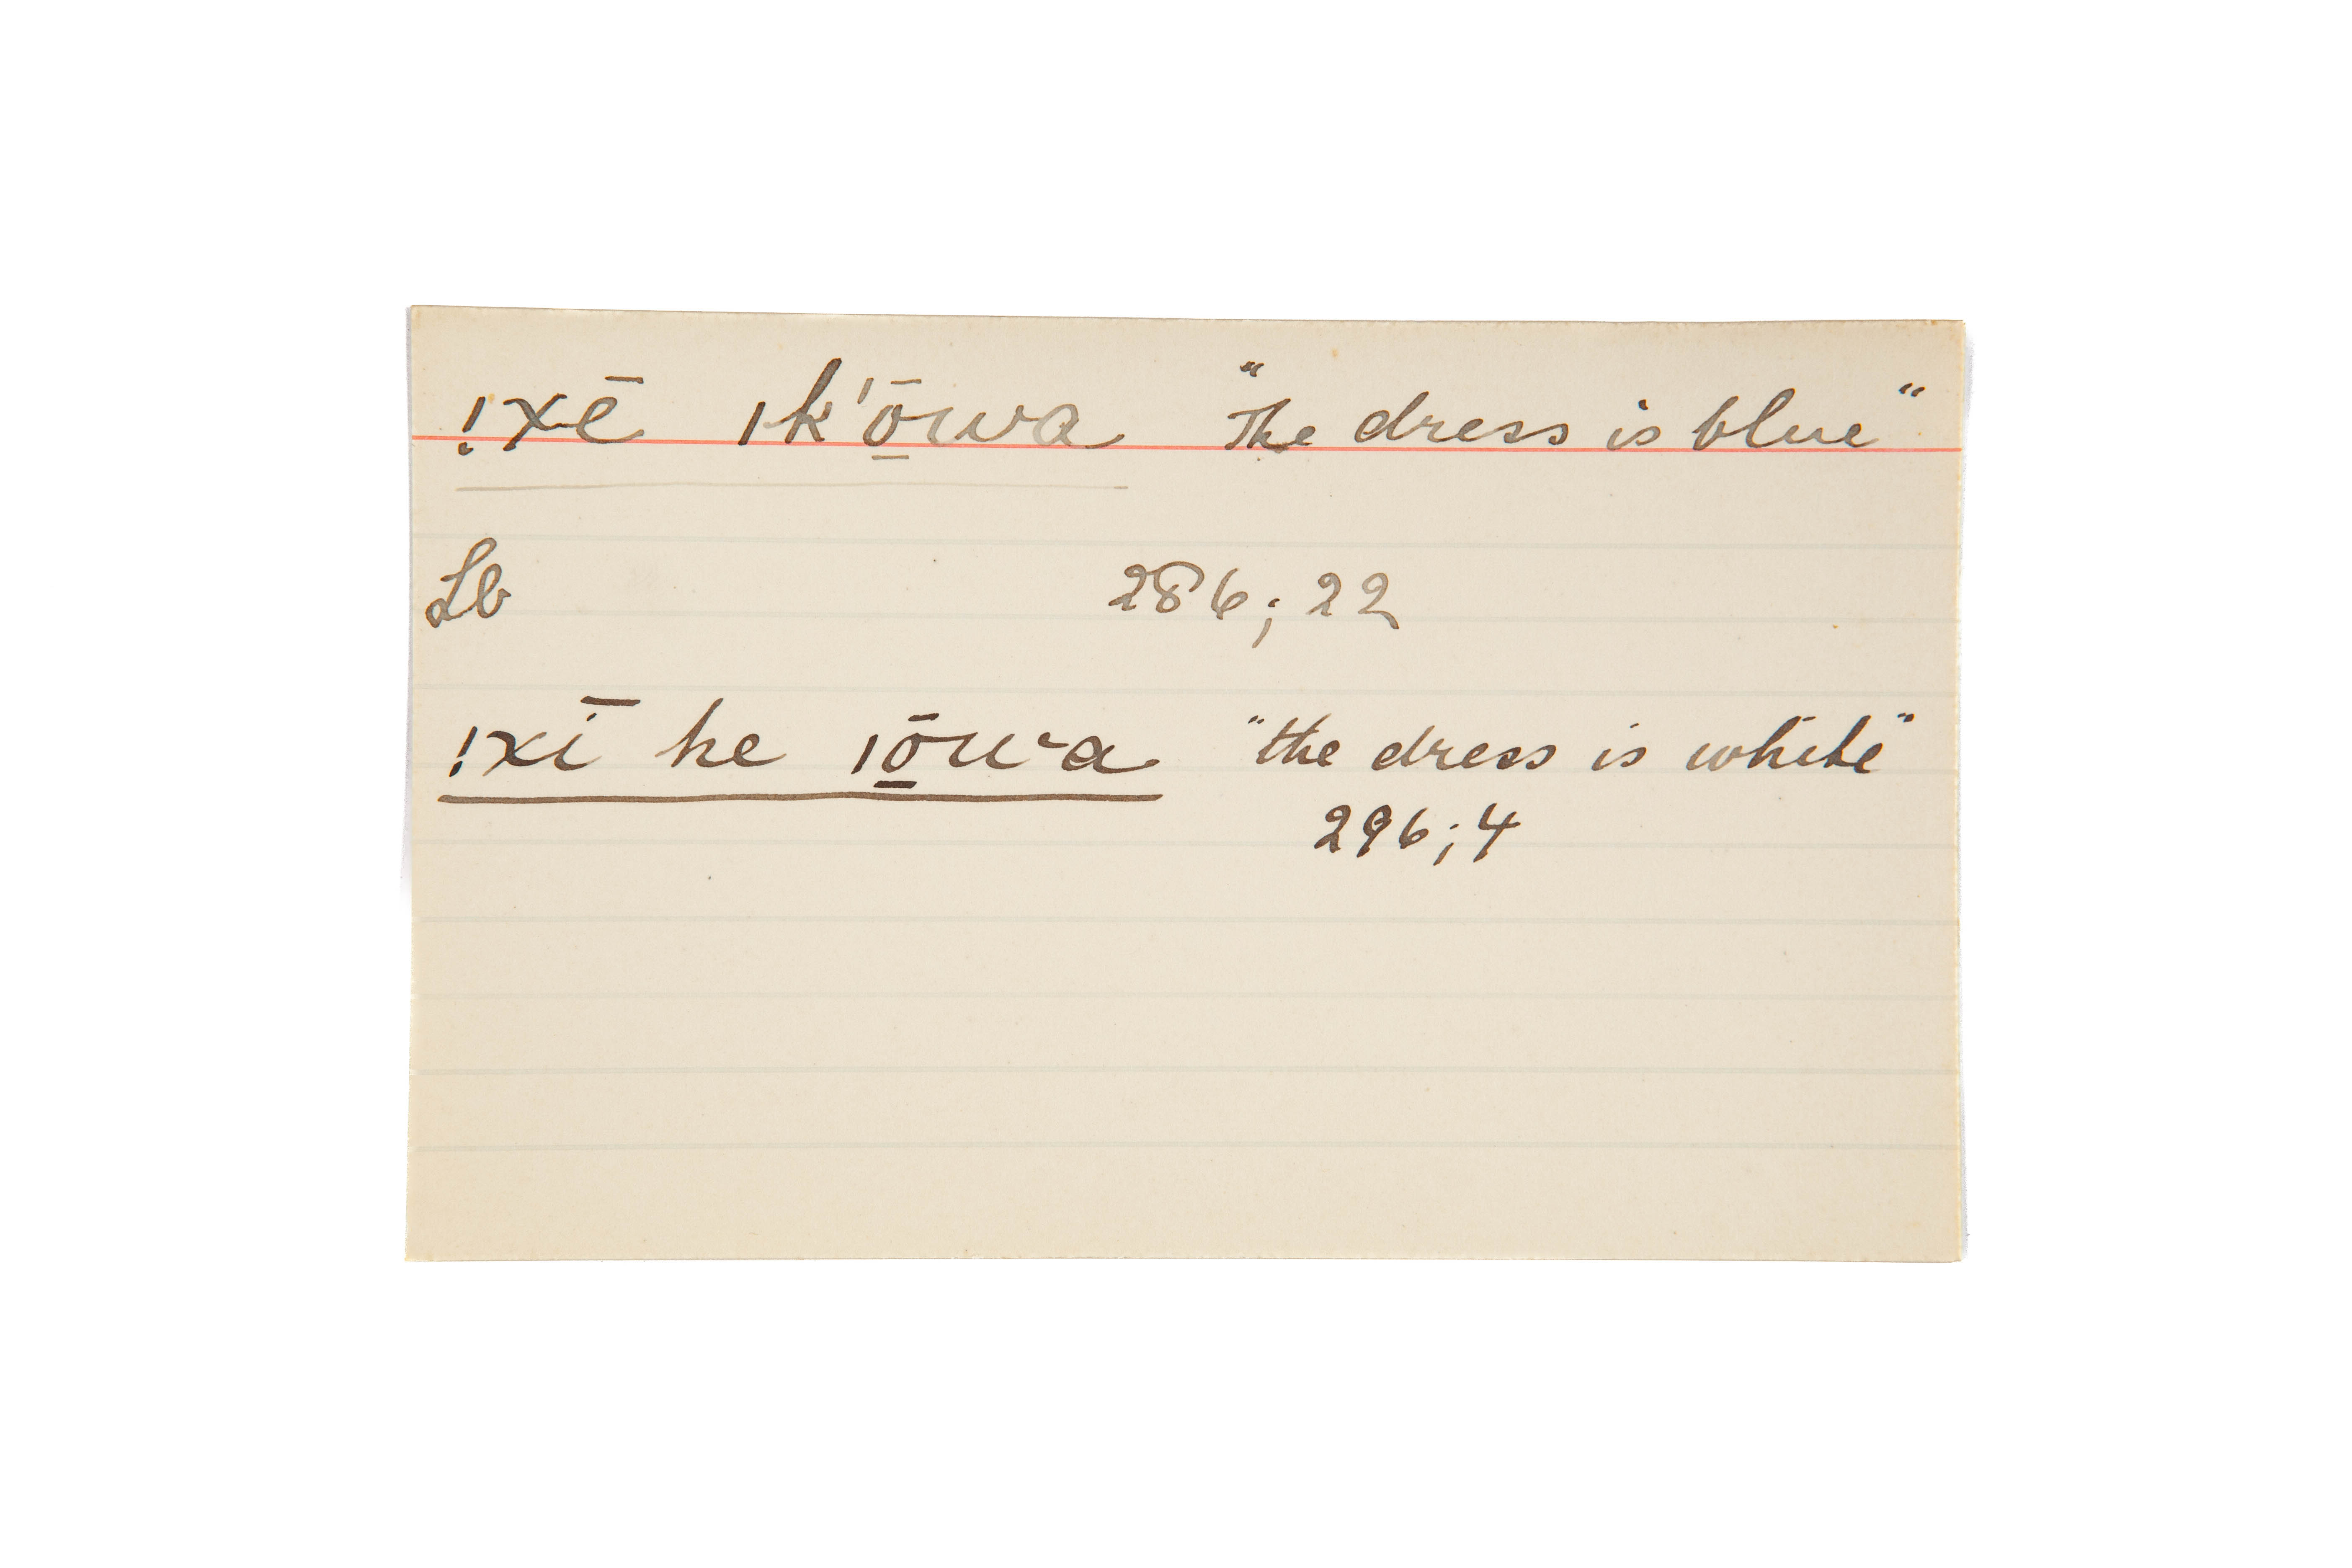 !xē ık'ō̱wa "The dress is blue"
Lb 286; 22
!xī he ıō̱wa "the dress is white"
296; 4